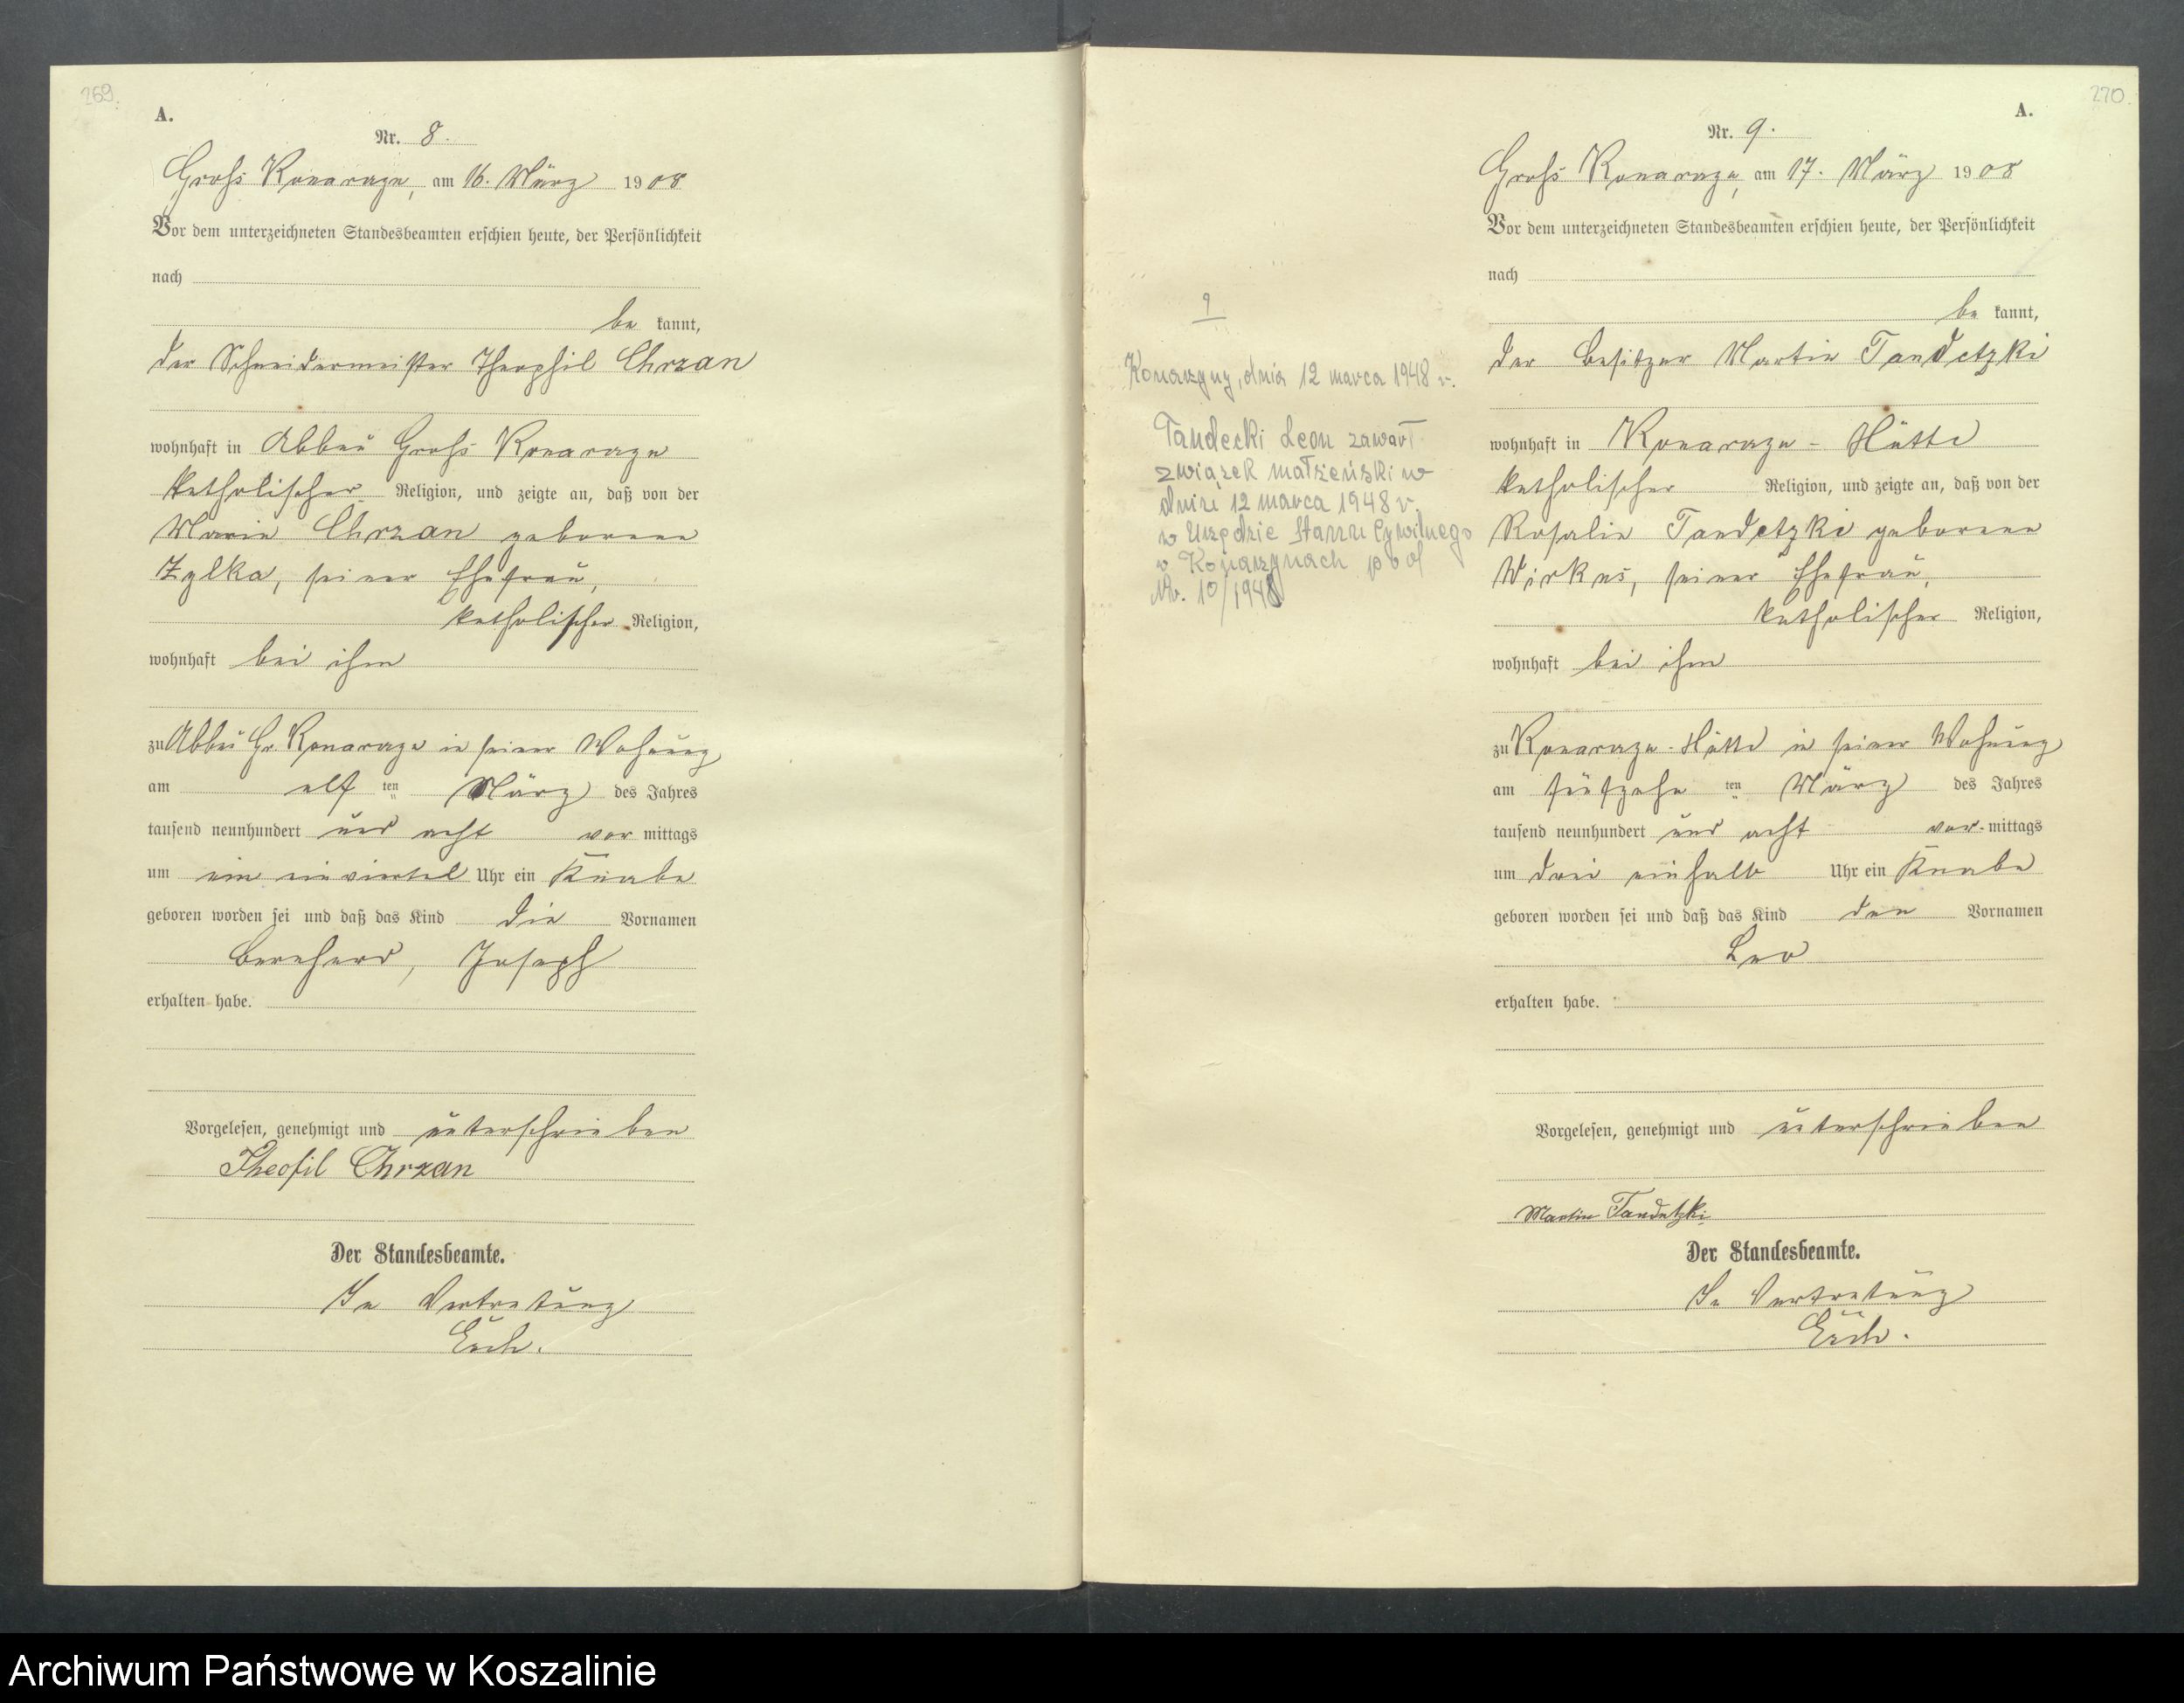 269.
A.
Nr. 8.
Groß Konarzyn, am 16. März 1908
Vor dem unterzeichneten Standesbeamten erschien heute, der Persönlichkeit
nach
be kannt,
der Schneidermeister Theophil Chrzan
wohnhaft in Abbau Groß Konarzyn
katholischer Religion, und zeigte an, daß von der
Marie Chrzan geborene
Zylka, seiner Ehefrau,
katholischer Religion,
wohnhaft bei ihm
zu Abbau Gr. Konarzyn in seiner Wohnung
am elf ten März des Jahres
tausend neunhundert und acht vor mittags
um ein einviertel Uhr ein Knabe
geboren worden sei und daß das Kind die Vornamen
Bernhard, Joseph
erhalten habe.
Vorgelesen, genehmigt und unterschrieben
Theofil Chrzan
Der Standesbeamte.
In Vertretung
270.
A.
Nr. 9.
Groß Konarzyn, am 17. März 1908
Vor dem unterzeichneten Standesbeamten erschien heute, der Persönlichkeit
nach
be kannt,
der Besitzer Martin Tandetzki
wohnhaft in Konarzyn-Hütte
katholischer Religion, und zeigte an, daß von der
Rosalie Tandetzki geborene
Wirkus, seiner Ehefrau,
katholischer Religion,
wohnhaft bei ihm
zu Konarzyn-Hütte in seiner Wohnung
am fünfzehn ten März des Jahres
tausend neunhundert und acht vor mittags
um drei einhalb Uhr ein Knabe
geboren worden sei und daß das Kind den Vornamen
Leo
erhalten habe.
Vorgelesen, genehmigt und unterschrieben
Martin Tandetzki
Der Standesbeamte.
In Vertretung
9
Konarzyny, dnia 12 marca 1948 r.
Tandecki Leon zawarł
związek małżeński w
dniu 12 marca 1948 r.
w Urzędzie Stanu Cywilnego
w Konarzynach pod
Nr. 10/1948
Archiwum Państwowe w Koszalinie